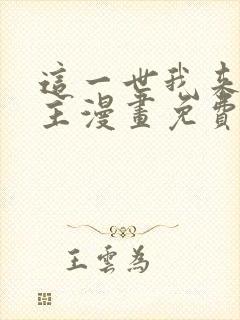 這一世我來
主漫畫免費
王雲為